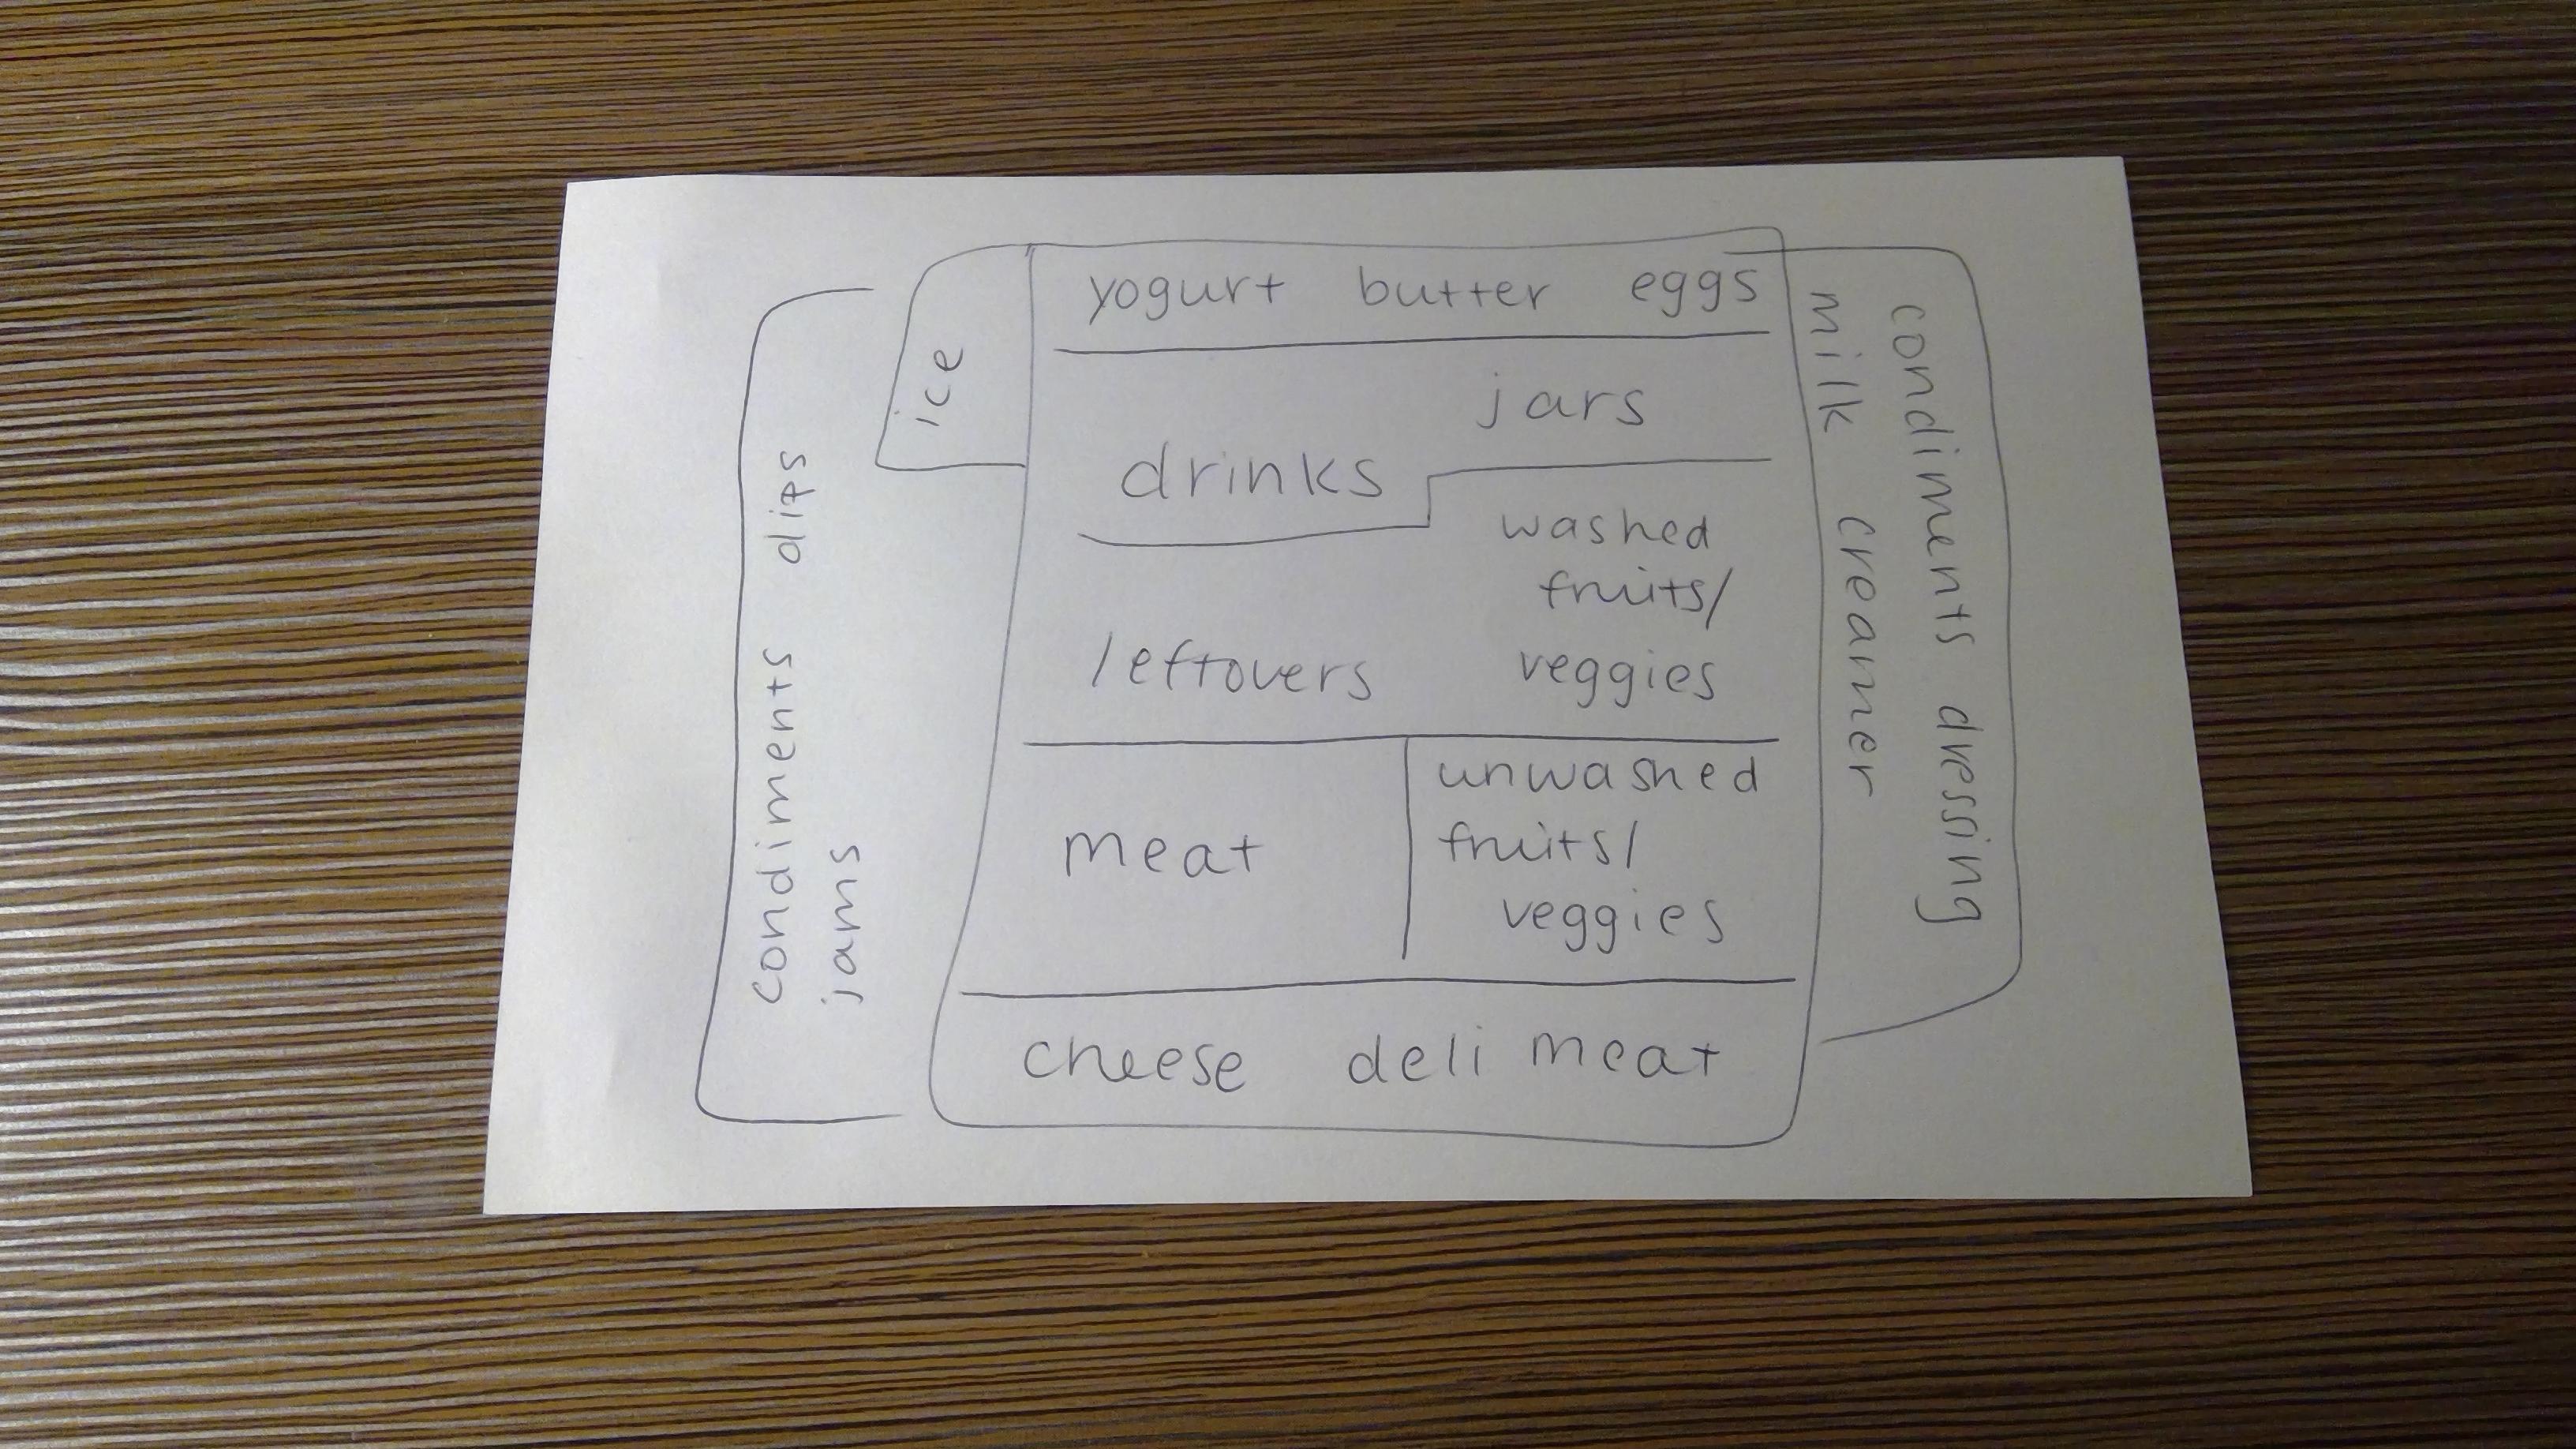 condiments dips
jams
ice
yogurt butter eggs
jars
drinks
washed
fruits/
veggies
leftovers
meat
unwashed
fruits/
veggies
cheese deli meat
condiments dressing
milk creamer